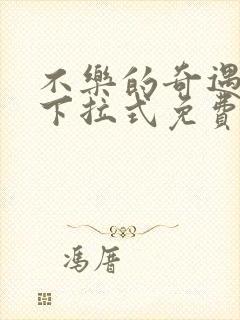 不樂的奇遇
下拉式免費
馮厝